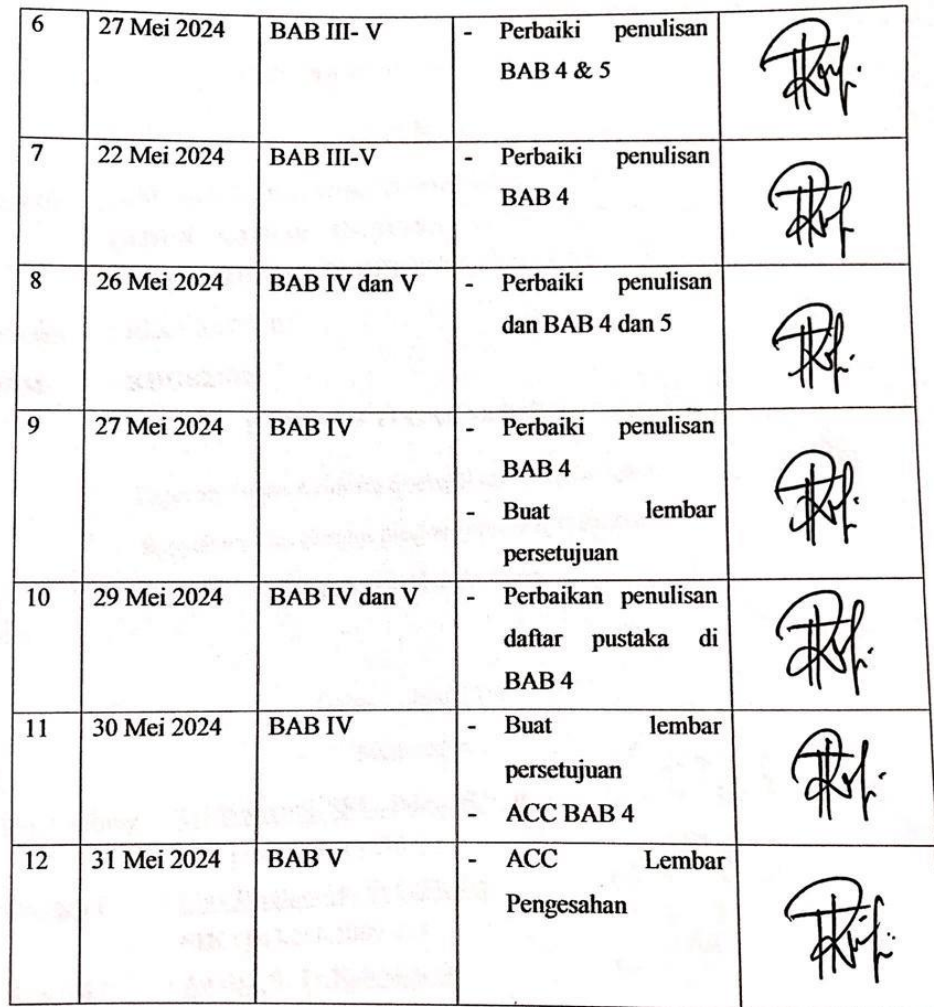 6 27 Mei 2024 BAB III- V - Perbaiki penulisan
BAB 4 & 5
7 22 Mei 2024 BAB III-V - Perbaiki penulisan
BAB 4
8 26 Mei 2024 BAB IV dan V - Perbaiki penulisan
dan BAB 4 dan 5
9 27 Mei 2024 BAB IV - Perbaiki penulisan
BAB 4
- Buat lembar
persetujuan
10 29 Mei 2024 BAB IV dan V - Perbaikan penulisan
daftar pustaka di
BAB 4
11 30 Mei 2024 BAB IV - Buat lembar
persetujuan
- ACC BAB 4
12 31 Mei 2024 BAB V - ACC Lembar
Pengesahan